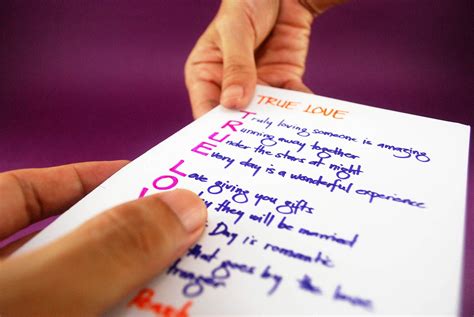 TRUE LOVE
Truly loving someone is amazing
Running away together
Under the stars at night
Every day is a wonderful experience
Love giving you gifts
they will be married
Day is romantic
that goes by the love
stranger